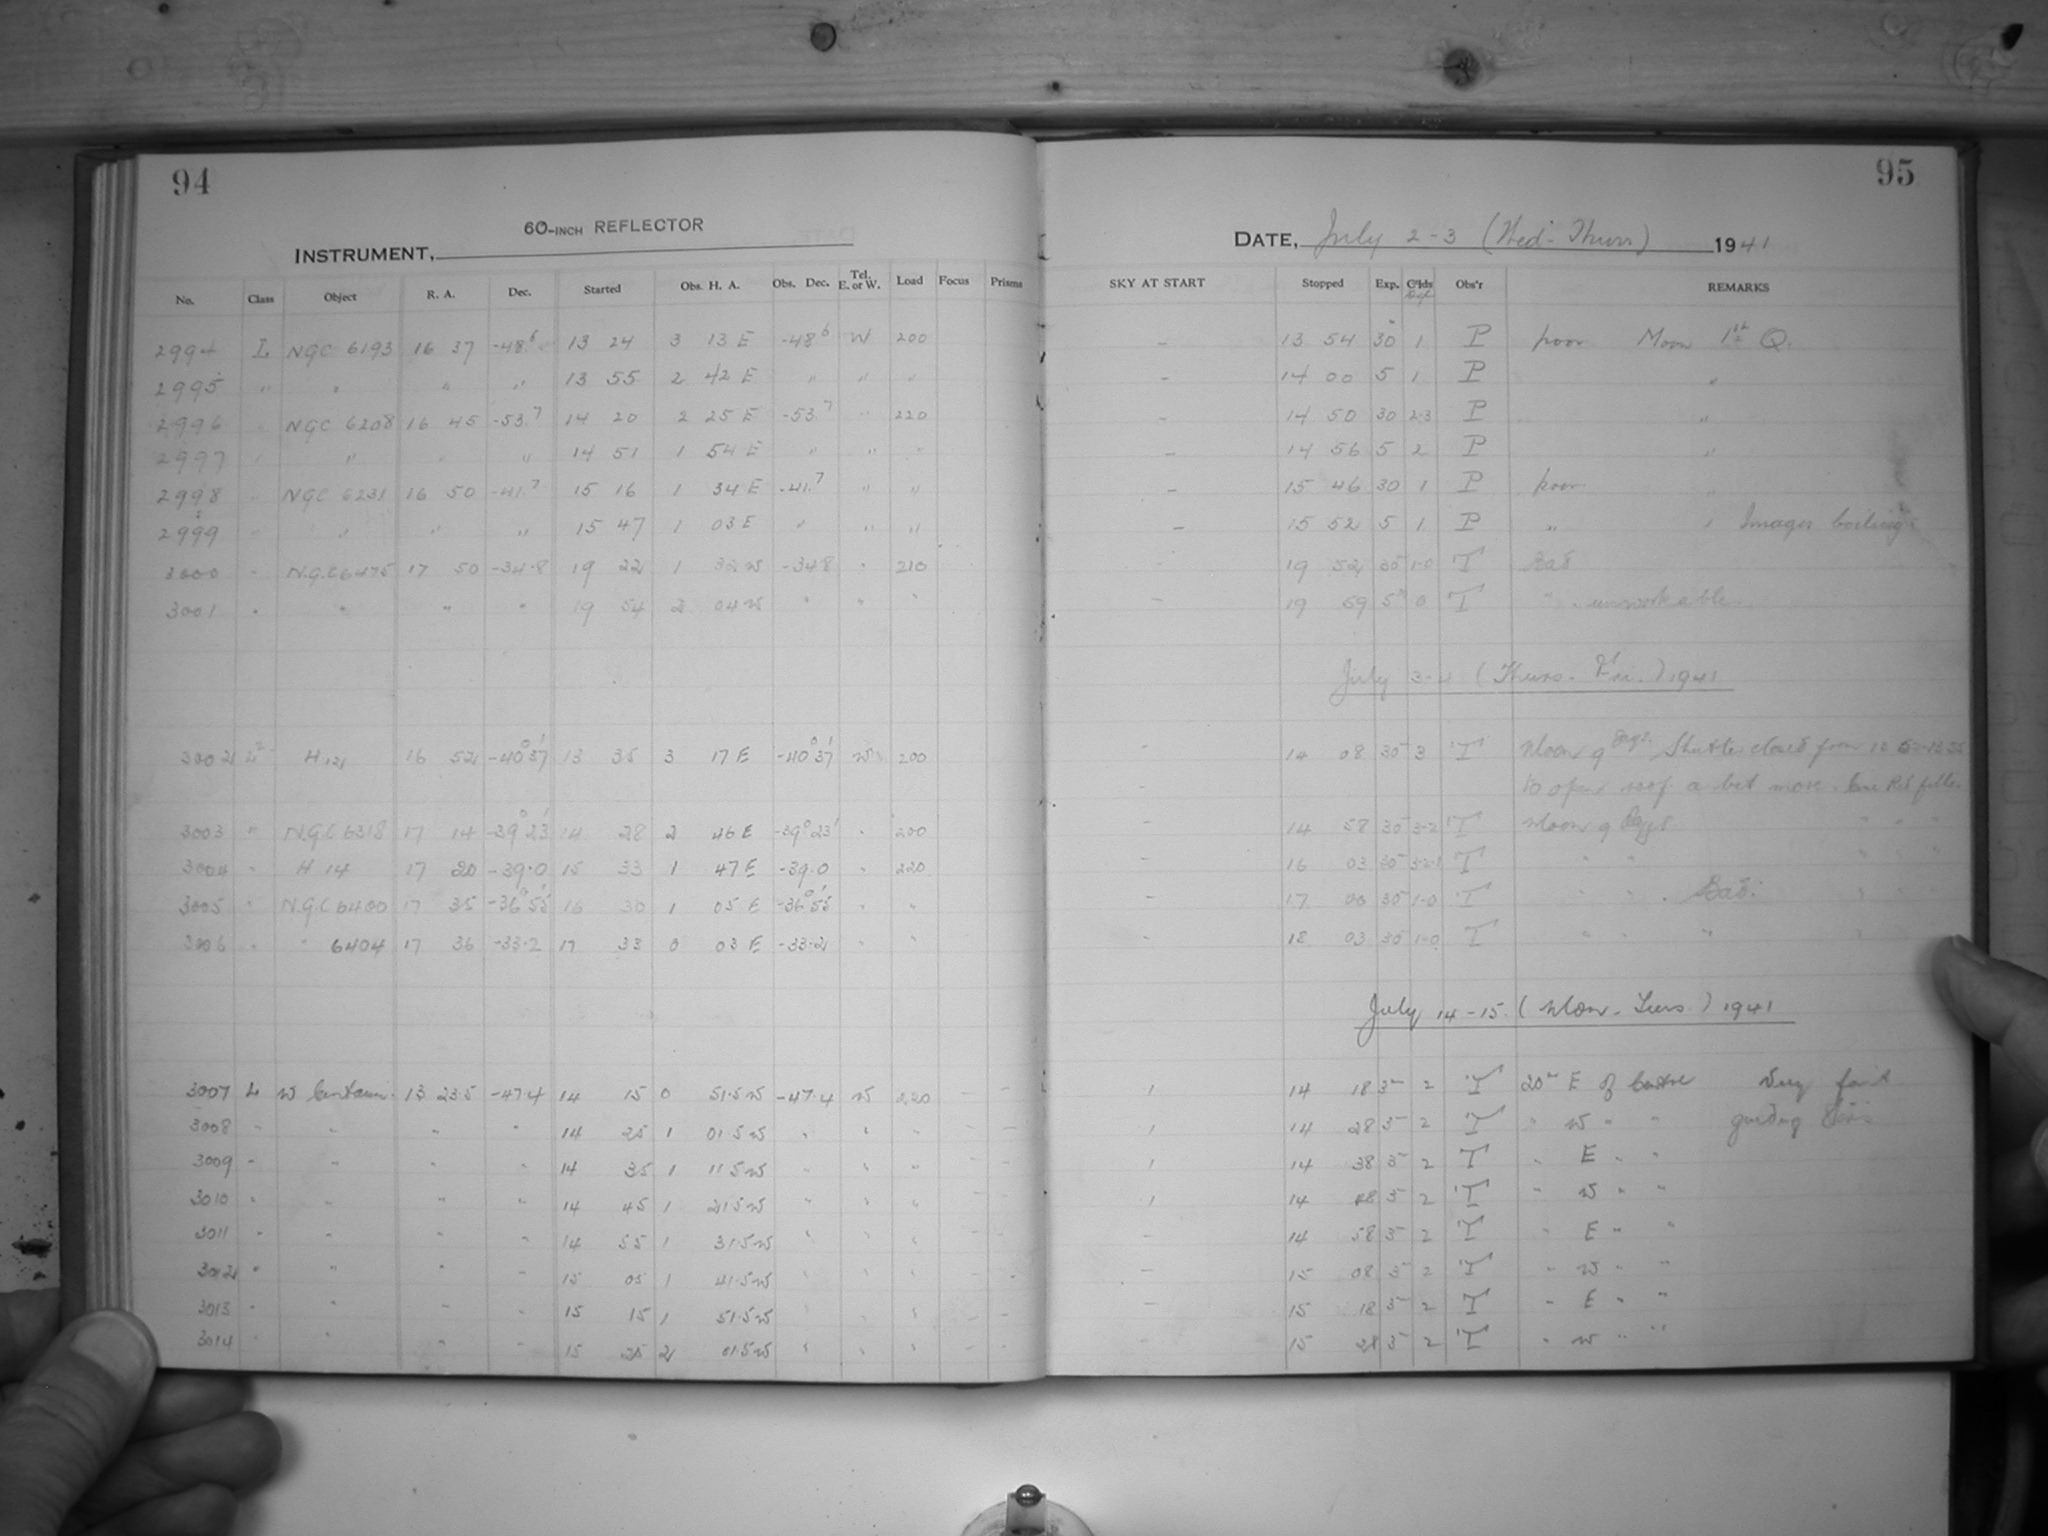 94
60-INCH REFLECTOR
INSTRUMENT,
No. Class Object R. A. Dec. Started Obs. H. A. Obs. Dec. Tel. E. or W. Load Focus Prisms
2994 L NGC 6193 16 37 -48.6 13 24 3 13 E -48.6 W 200
2995 " " " " 13 55 2 42 E " " "
2996 " NGC 6208 16 45 -53.7 14 20 2 25 E -53.7 " 220
2997 " " " " 14 51 1 54 E " " "
2998 " NGC 6231 16 50 -41.7 15 16 1 34 E -41.7 " "
2999 " " " " 15 47 1 03 E " " "
3000 " N.G.C 6475 17 50 -34.8 19 22 1 32 W -34.8 " 210
3001 " " " " 19 54 2 04 W " " "
3002 L2 H 12 16 52 -40°37' 13 35 3 17 E -40°37' W 200
3003 " N.G.C 6318 17 14 -39°23' 14 28 2 46 E -39°23' " 200
3004 " H 14 17 20 -39.0 15 33 1 47 E -39.0 " 220
3005 " N.G.C 6400 17 35 -36°55' 16 30 1 05 E -36°55' " "
3006 " " 6404 17 36 -33.2 17 33 0 03 E -33.2 " "
3007 L W Centauri 13 23.5 -47.4 14 15 0 51.5 W -47.4 W 220 - -
3008 " " " " 14 25 1 01.5 W " " " - -
3009 " " " " 14 35 1 11.5 W " " " - -
3010 " " " " 14 45 1 21.5 W " " " - -
3011 " " " " 14 55 1 31.5 W " " " - -
3012 " " " " 15 05 1 41.5 W " " " - -
3013 " " " " 15 15 1 51.5 W " " " - -
3014 " " " " 15 25 2 01.5 W " " " - -
95
DATE, July 2-3 (Wed-Thurs) 1941
SKY AT START Stopped Exp. Obs'r REMARKS
- 13 54 30 1 P poor Moon 1st Q.
- 14 00 5 1 P "
- 14 50 30 2-3 P "
- 14 56 5 2 P "
- 15 46 30 1 P poor "
- 15 52 5 1 P " " Images boiling
- 19 52 30 1-0 T Bad
- 19 59 5 0 T " unworkable
July 3-4 (Thurs. Fri.) 1941
- 14 08 30 3 T Moon 9 days. Shutter closed from
- to open roof a bit more.
- 14 58 30 3-2 T Moon 9 Days " " "
- 16 03 30 T " " " " "
- 17 00 30 1-0 T " " Bad. " "
- 18 03 30 1-0 T " " " "
July 14-15 (Mon. Tues.) 1941
1 14 18 3m 2 T 20m E of Centre Very faint
1 14 28 3 2 T " W " " guiding star
1 14 38 3 2 T " E " "
1 14 48 3 2 T " W " "
- 14 58 3 2 T " E " "
- 15 08 3 2 T " W " "
- 15 18 3 2 T " E " "
- 15 28 3 2 T " W " "